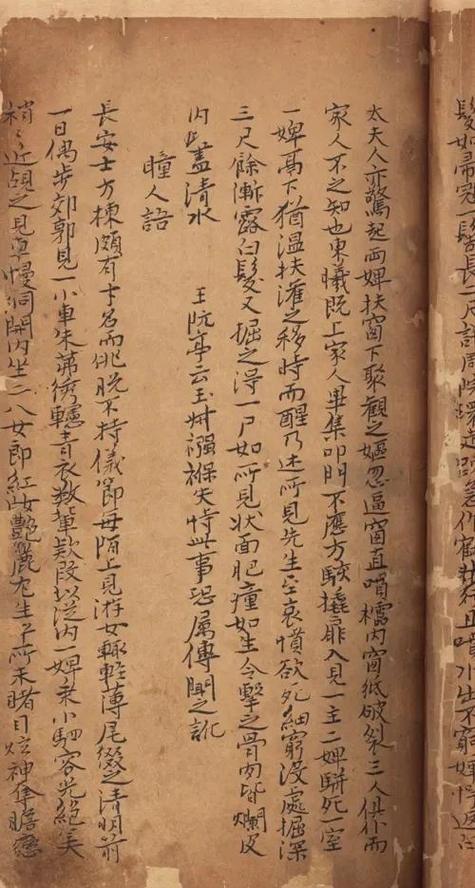 髮如帚冠一髻長二尺許周院環走疎急作鶴行且噴水出不窮婢愕返白
太夫人亦驚起兩婢扶窗下聚觀之嫗忽逼窗直噴櫺內窗紙破裂三人俱仆而
家人不之知也東曦既上家人畢集叩門不應方駭撬扉入見一主二婢駢死一室
一婢鬲下猶溫扶灌之移時而醒乃述所見先生至哀憤欲死細窮沒處掘深
三尺餘漸露白髮又掘之得一尸如所見狀面肥瘇如生令擊之骨肉皆爛皮
內盡清水　王阮亭云玉叔襁褓失恃此事恐屬傳聞之訛
瞳人語
長安士方棟頗有才名而佻脫不持儀節每陌上見游女輒輕薄尾綴之清明前
一日偶步郊郭見一小車朱茀綉幰青衣數輩款段以從內一婢乘小駟容光絕美
稍稍近覘之見車幔洞開內坐二八女郎紅妝艷麗尤生平所未睹目炫神奪瞻戀